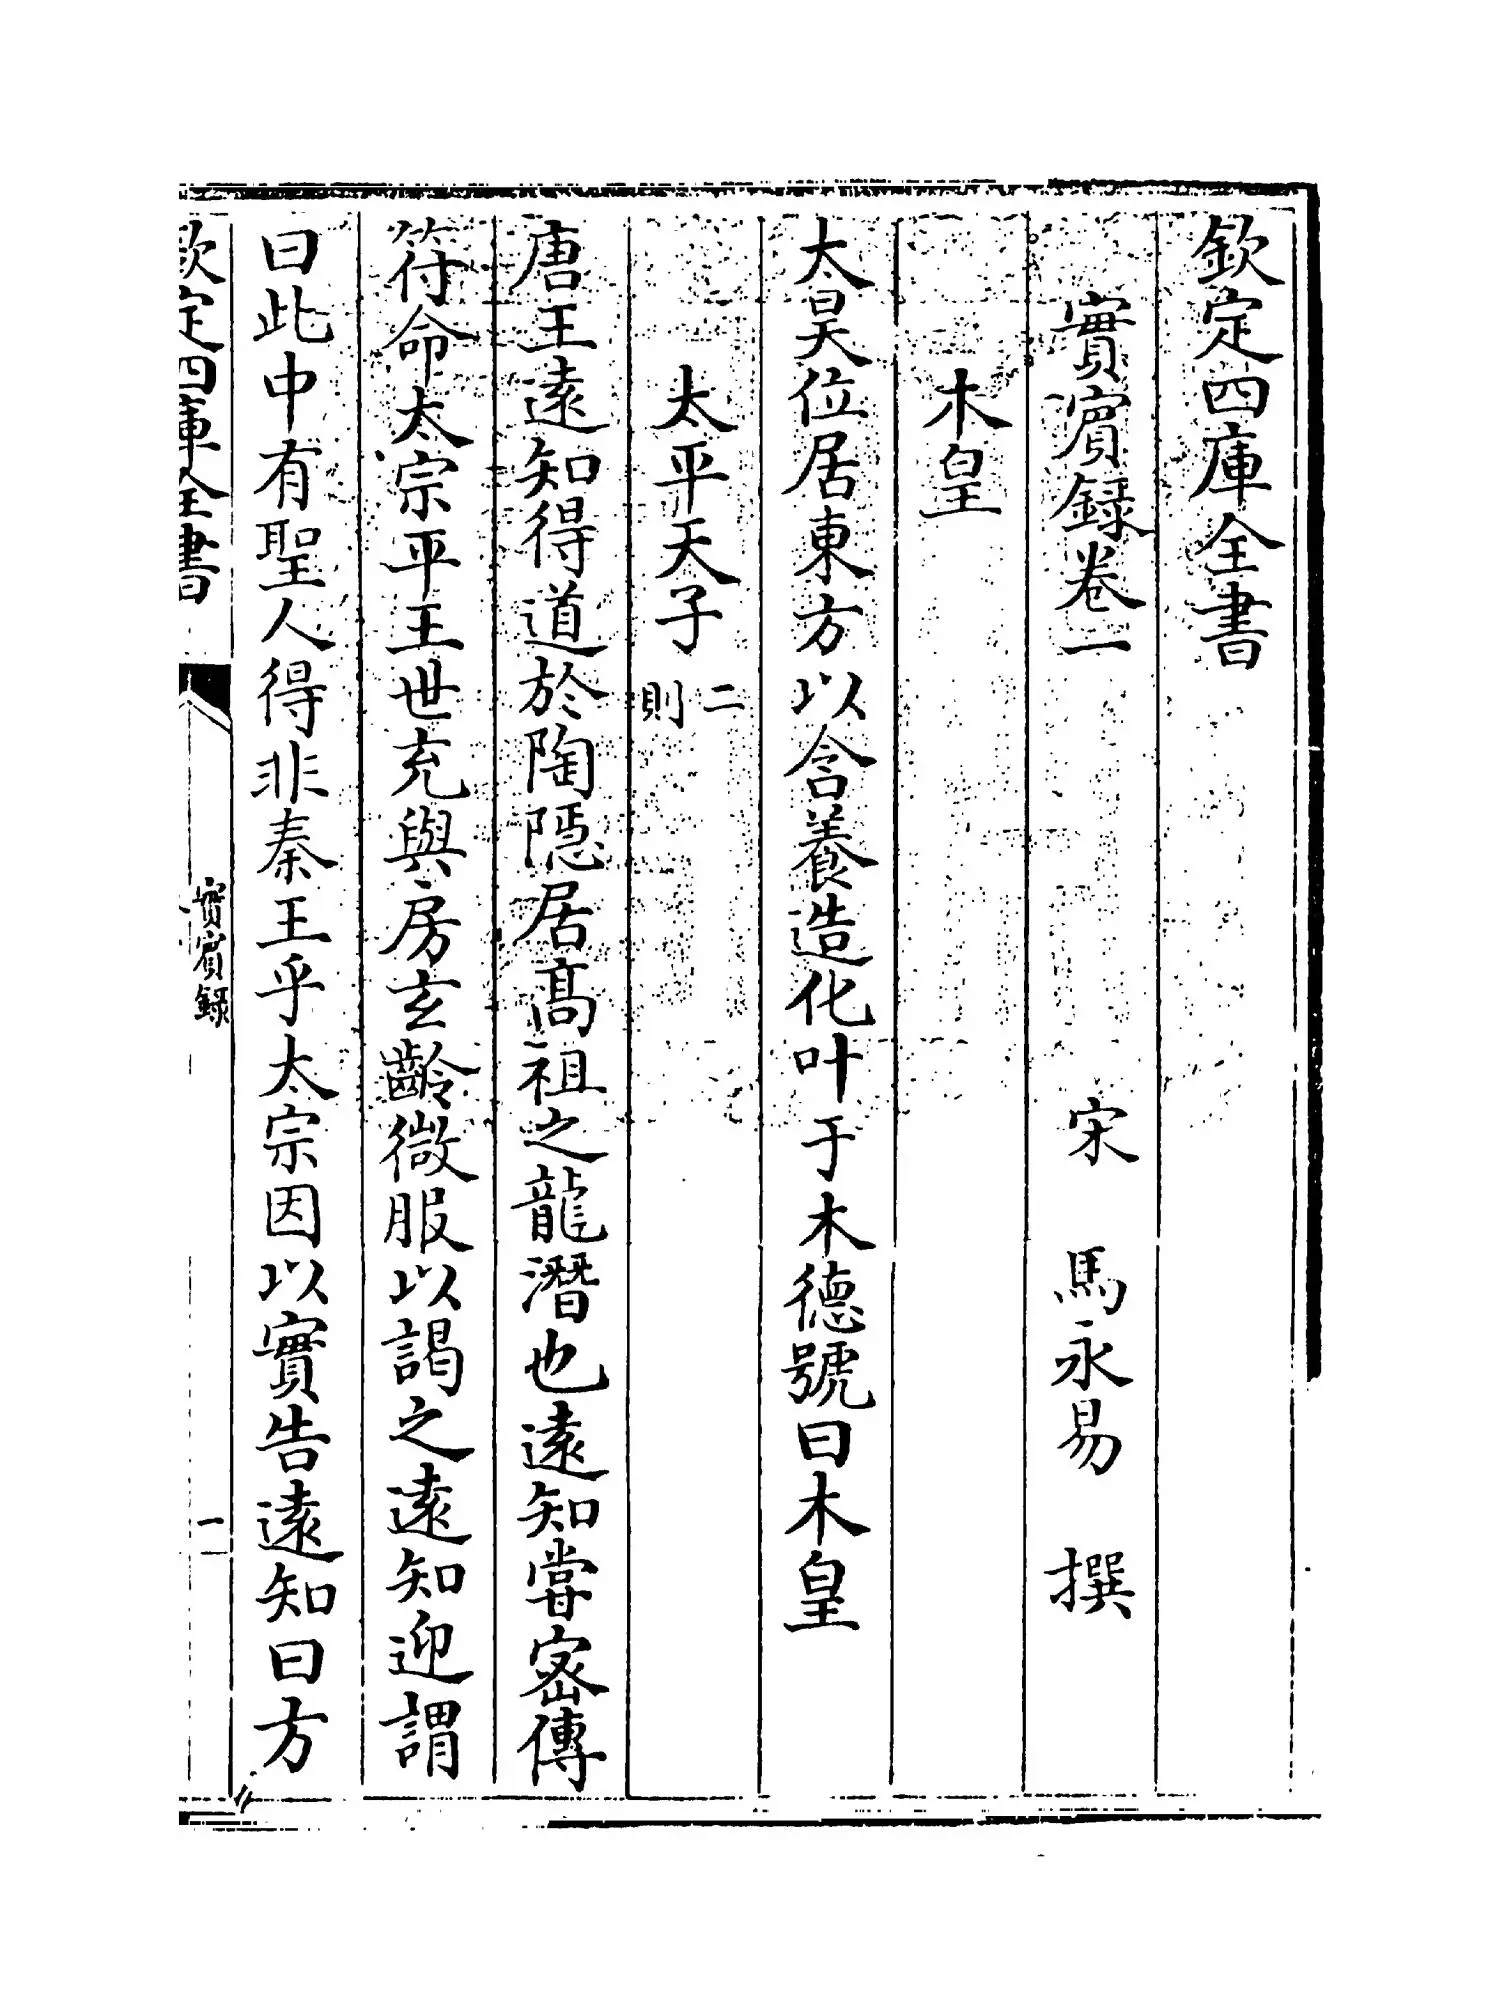 欽定四庫全書
實賔録卷一
宋 馬永易 撰
木皇
太昊位居東方以含養造化叶于木德號曰木皇
太平天子二則
唐王遠知得道於陶隠居高祖之龍潛也遠知嘗宻傳
符命太宗平王世充與房玄齡微服以謁之遠知迎謂
曰此中有聖人得非秦王乎太宗因以實告遠知曰方
欽定四庫全書
實賔録
一